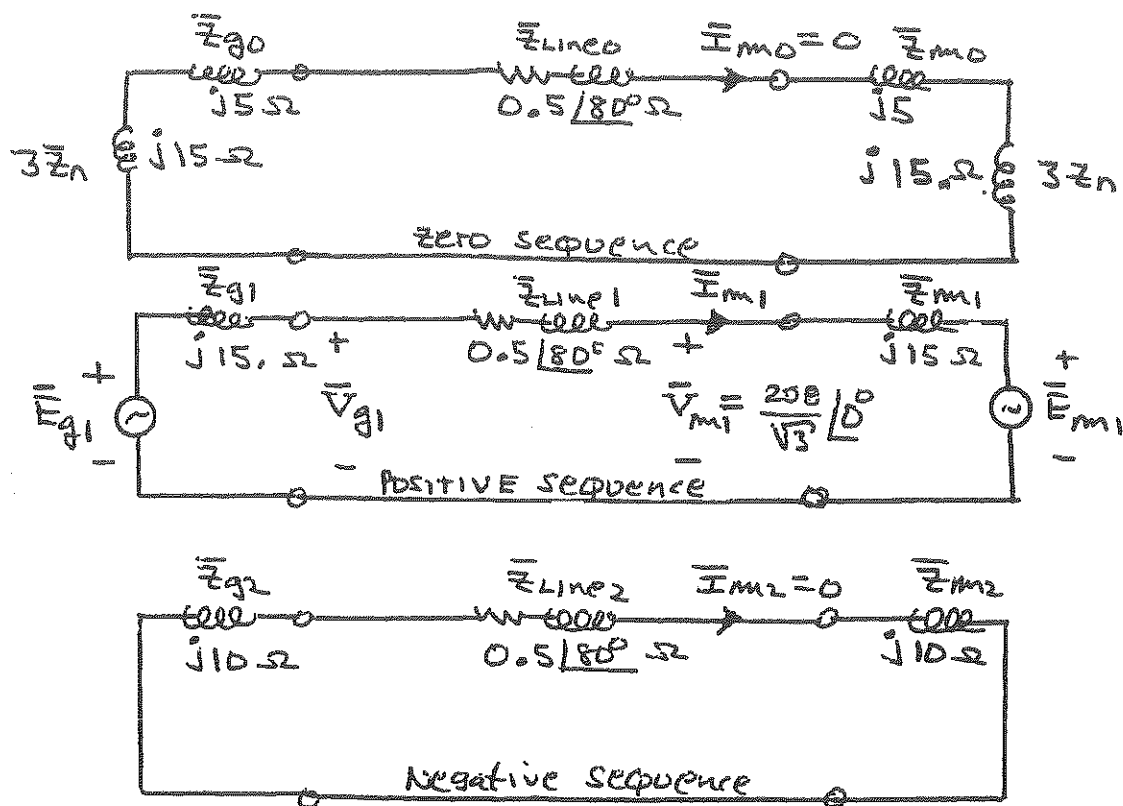 Z̄g0 Z̄Line0 Īm0 = 0 Z̄m0
j5 Ω 0.5/80° Ω j5
3Z̄n j15 Ω j15. Ω 3Zn
zero sequence
Z̄g1 Z̄Line1 Īm1 Z̄m1
j15. Ω 0.5/80° Ω j15 Ω
+ + + +
Ēg1 V̄g1 V̄m1 = 208/√3 /0° Ēm1
- - - -
POSITIVE sequence
Z̄g2 Z̄Line2 Īm2 = 0 Z̄m2
j10 Ω 0.5/80° Ω j10 Ω
Negative sequence